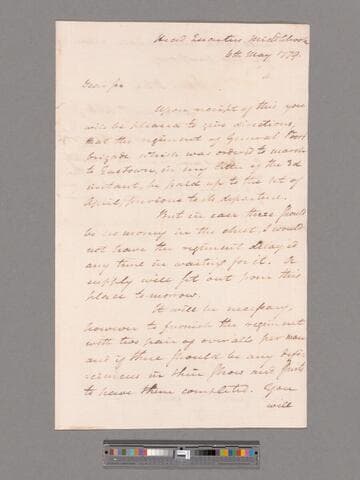 Head Quarters Middlebrook
6th May 1779.
Dear Sir
Upon receipt of this you
will be pleased to give directions,
that the regiment of General
brigade which was ordered to march
to Eastown, in my letter of the 3d
instant, be paid up to the 1st of
April previous to its departure.
But in case there should
be no money in the chest, I would
not have the regiment delayed
any time in waiting for it. A
supply will set out from this
place tomorrow.
It will be necessary,
however to furnish the regiment
with two pair of overalls per man
and if there should be any
in their shoes and
to have them completed. You
will